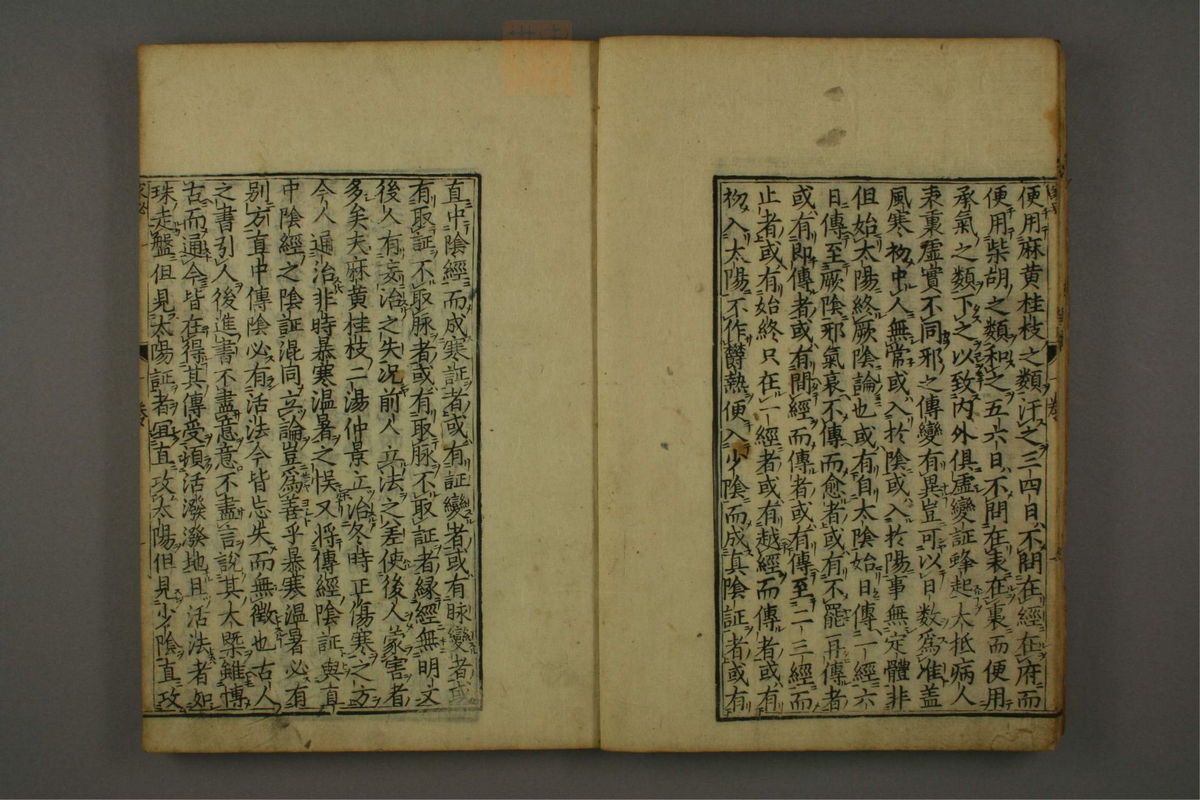 便用麻黄桂枝之類汗之三四日不問在經在府而
便用柴胡之類和之五六日不問在表在裏而便用
承氣之類下之以致内外俱虚變証蜂起大抵病人
表裏虚實不同邪之傳變有異豈可以日數爲准盖
風寒初中人無常或入於陰或入於陽事無定體非
但始太陽終厥陰論也或有自太陰始日傳二經六
日傳至厥陰邪氣衰不傳而愈者或有不罷再傳者
或有即傳者或有間經而傳者或有傳至二三經而
止者或有始終只在一經者或有越經而傳者或有
初入太陽不作欝熱便入少陰而成真陰証者或有
直中陰經而成寒証者或有証變者或有脉變者或
有取証不取脉者或有取脉不取証者縁經無明文
後人有妄治之失况前人立法之差使後人蒙害者
多矣夫麻黄桂枝二湯仲景立治冬時正傷寒之方
今人通治非時暴寒温暑之悞又將傳經陰証與直
中陰經之陰証混同立論豈爲善乎暴寒温暑必有
别方直中傳陰必有活法今皆忘失而無徴也古人
之書引人後進書不盡意意不盡言説其大槩雖博
古而通今皆在得其傳受頓活潑潑地且活法者如
珠走盤但見太陽証者直攻太陽但見少陰直攻